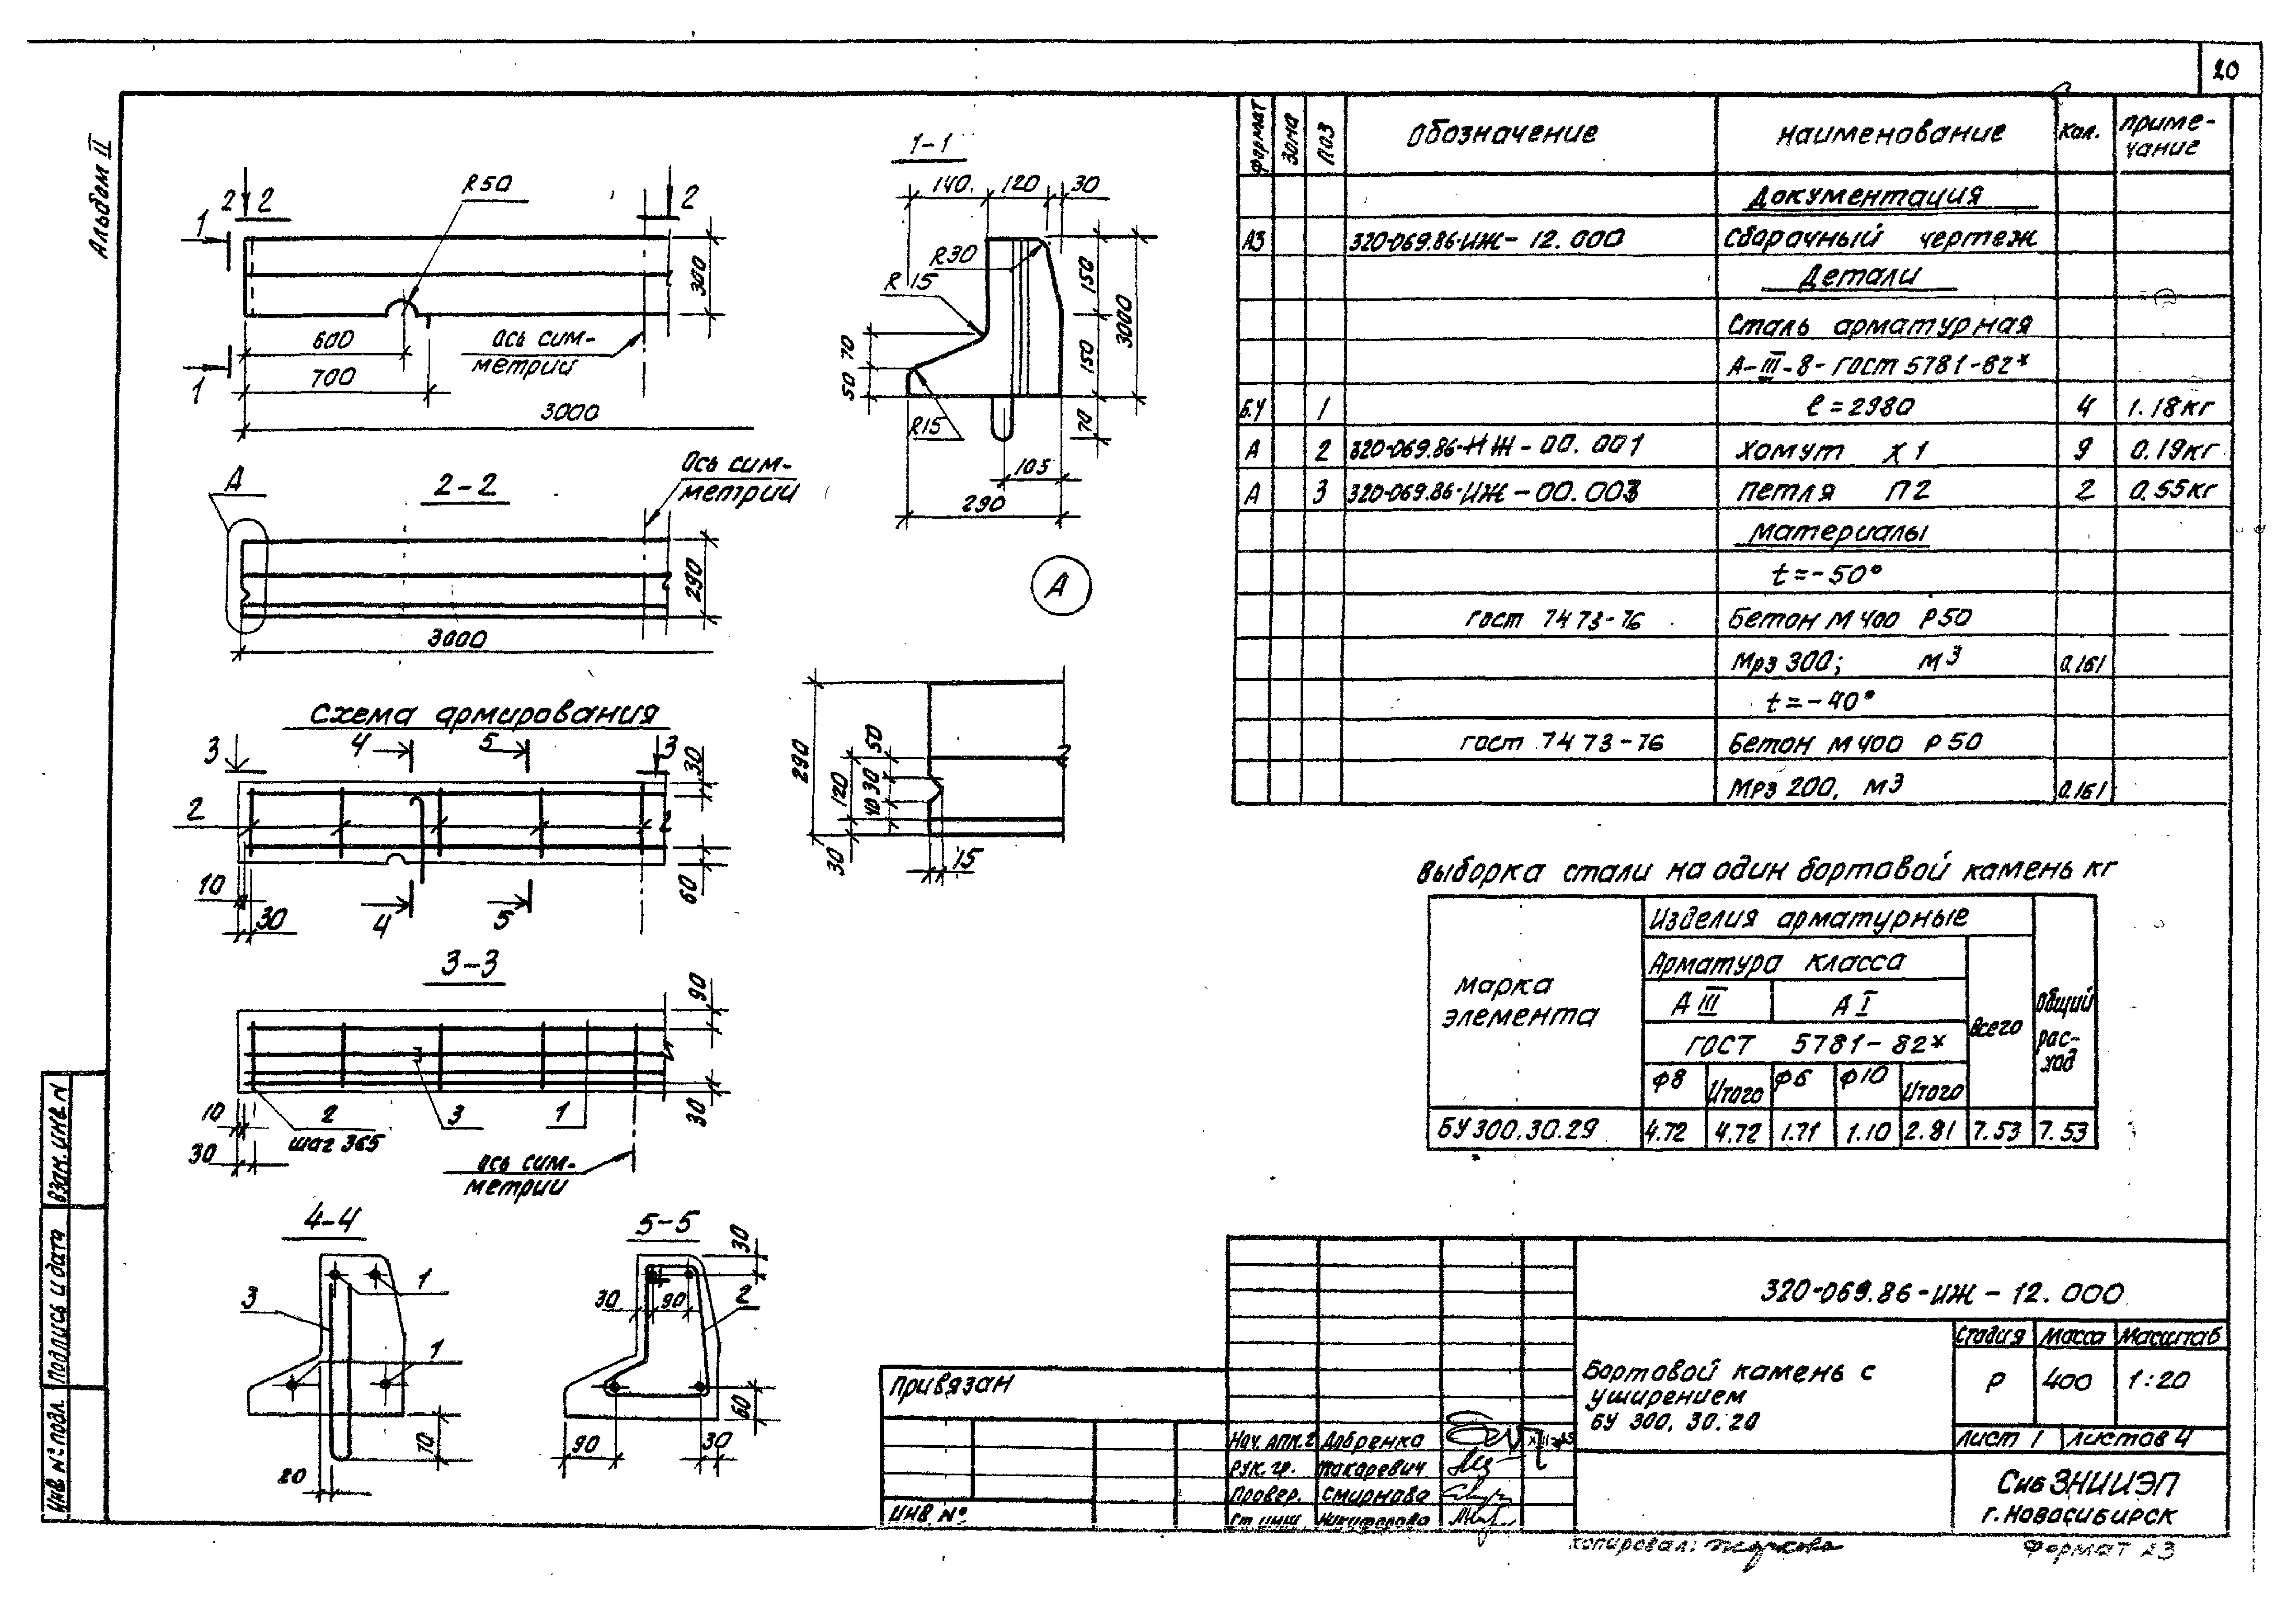 20
Альбом II
1-1
140. 120 30
R30
R15
70
50
150
150
3000
70
R15
105
290
2 2
2
1
R50
300
600
ось сим-
метрии
700
1
3000
А
2-2
ось сим-
метрии
290
3000
А
290
120
50
30
40
30
15
Схема армирования
3 4 5 3
30
2
2
10
30
4
5
60
3-3
90
10
30
2
шаг 365
3
1
30
ось сим-
метрии
4-4
3
1
1
70
20
5-5
30
30 90
2
60
90
30
формат зона поз обозначение наименование кол. приме-
чание
Документация
А3 320-069.86-ИЖ-12.000 Сборочный чертеж
Детали
Сталь арматурная
А-III-8-гост 5781-82*
Б.Ч 1 ℓ=2980 4 1.18кг
А 2 320-069.86-ИЖ-00.001 Хомут Х1 9 0.19кг
А 3 320-069.86-ИЖ-00.003 Петля П2 2 0.55кг
Материалы
t=-50°
гост 7473-76 Бетон М400 Р50
Мрз 300; м3 0.161
t=-40°
гост 7473-76 Бетон М400 Р50
Мрз 200, м3 0.161
Выборка стали на один бортовой камень кг
Марка
элемента
Изделия арматурные
Арматура класса
А III А I
ГОСТ 5781-82*
ф8 Итого ф6 ф10 Итого
всего
общий
рас-
ход
БУ 300.30.29 4.72 4.72 1.71 1.10 2.81 7.53 7.53
320-069.86-ИЖ-12.000
Бортовой камень с
уширением
БУ 300.30.20
Стадия Масса Масштаб
Р 400 1:20
Лист 1 Листов 4
СибЗНИИЭП
г. Новосибирск
Привязан
инв. №
Нач. АПК.2
Рук. гр. Макаревич
Провер. Смирнова
Ст. инж. Никифорова
Взам. инв. N
Подпись и дата
Инв. № подл.
Копировал:
Формат